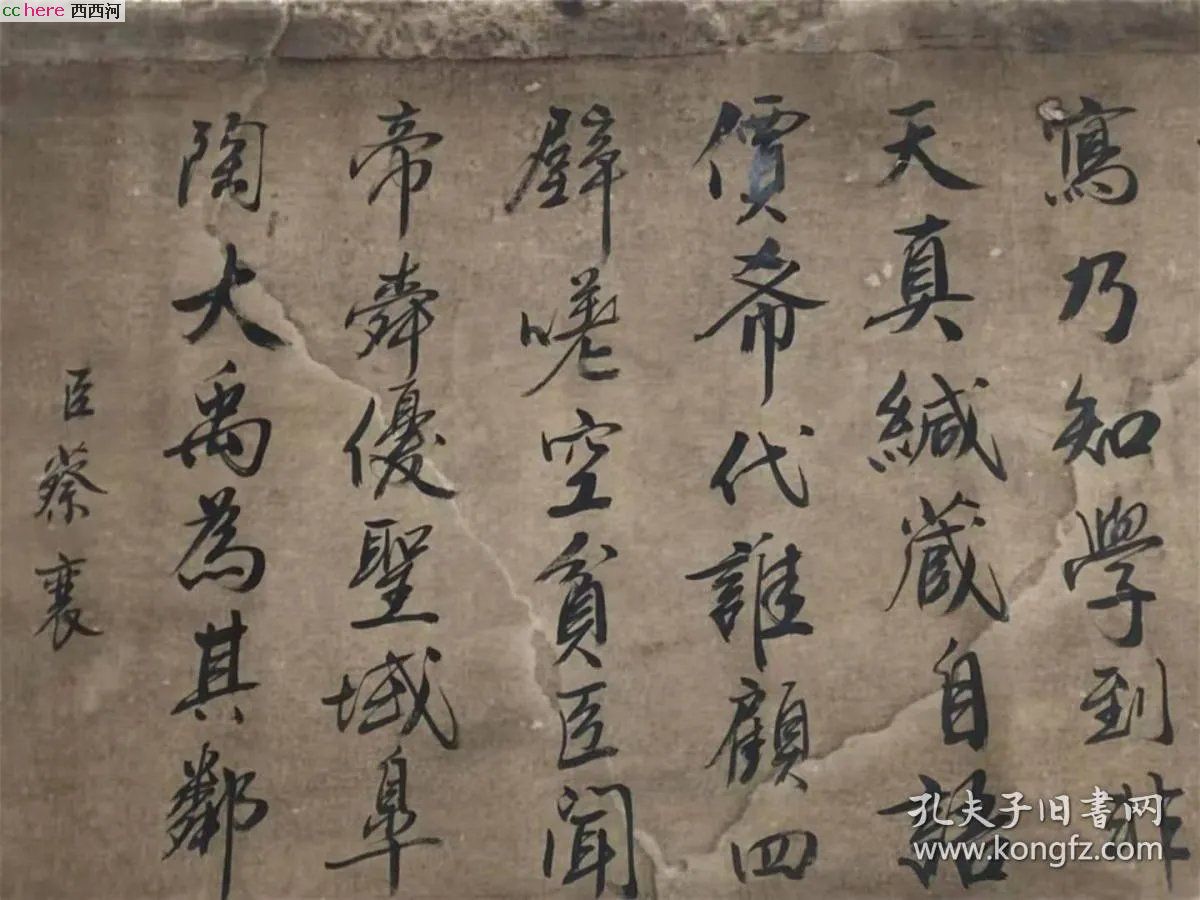 cchere 西西河
寫乃知學到非
天真緘藏自語
價希代誰顧四
壁嗟空貧臣聞
帝舜優聖域皐
陶大禹為其鄰
臣蔡襄
孔夫子旧书网
www.kongfz.com